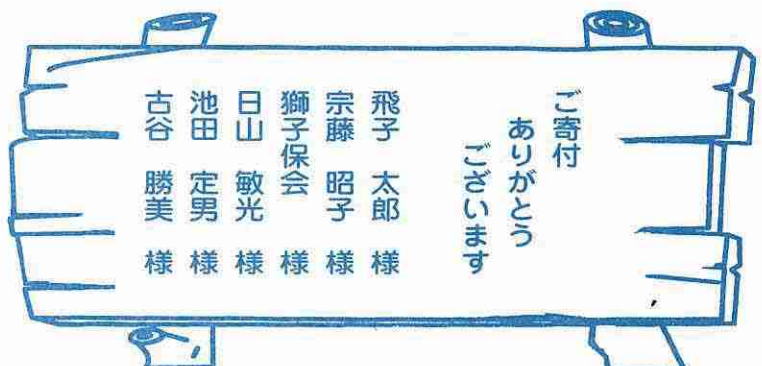 ご寄付
ありがとう
ございます
飛子 太郎 様
宗藤 昭子 様
獅子保会 様
日山 敏光 様
池田 定男 様
古谷 勝美 様